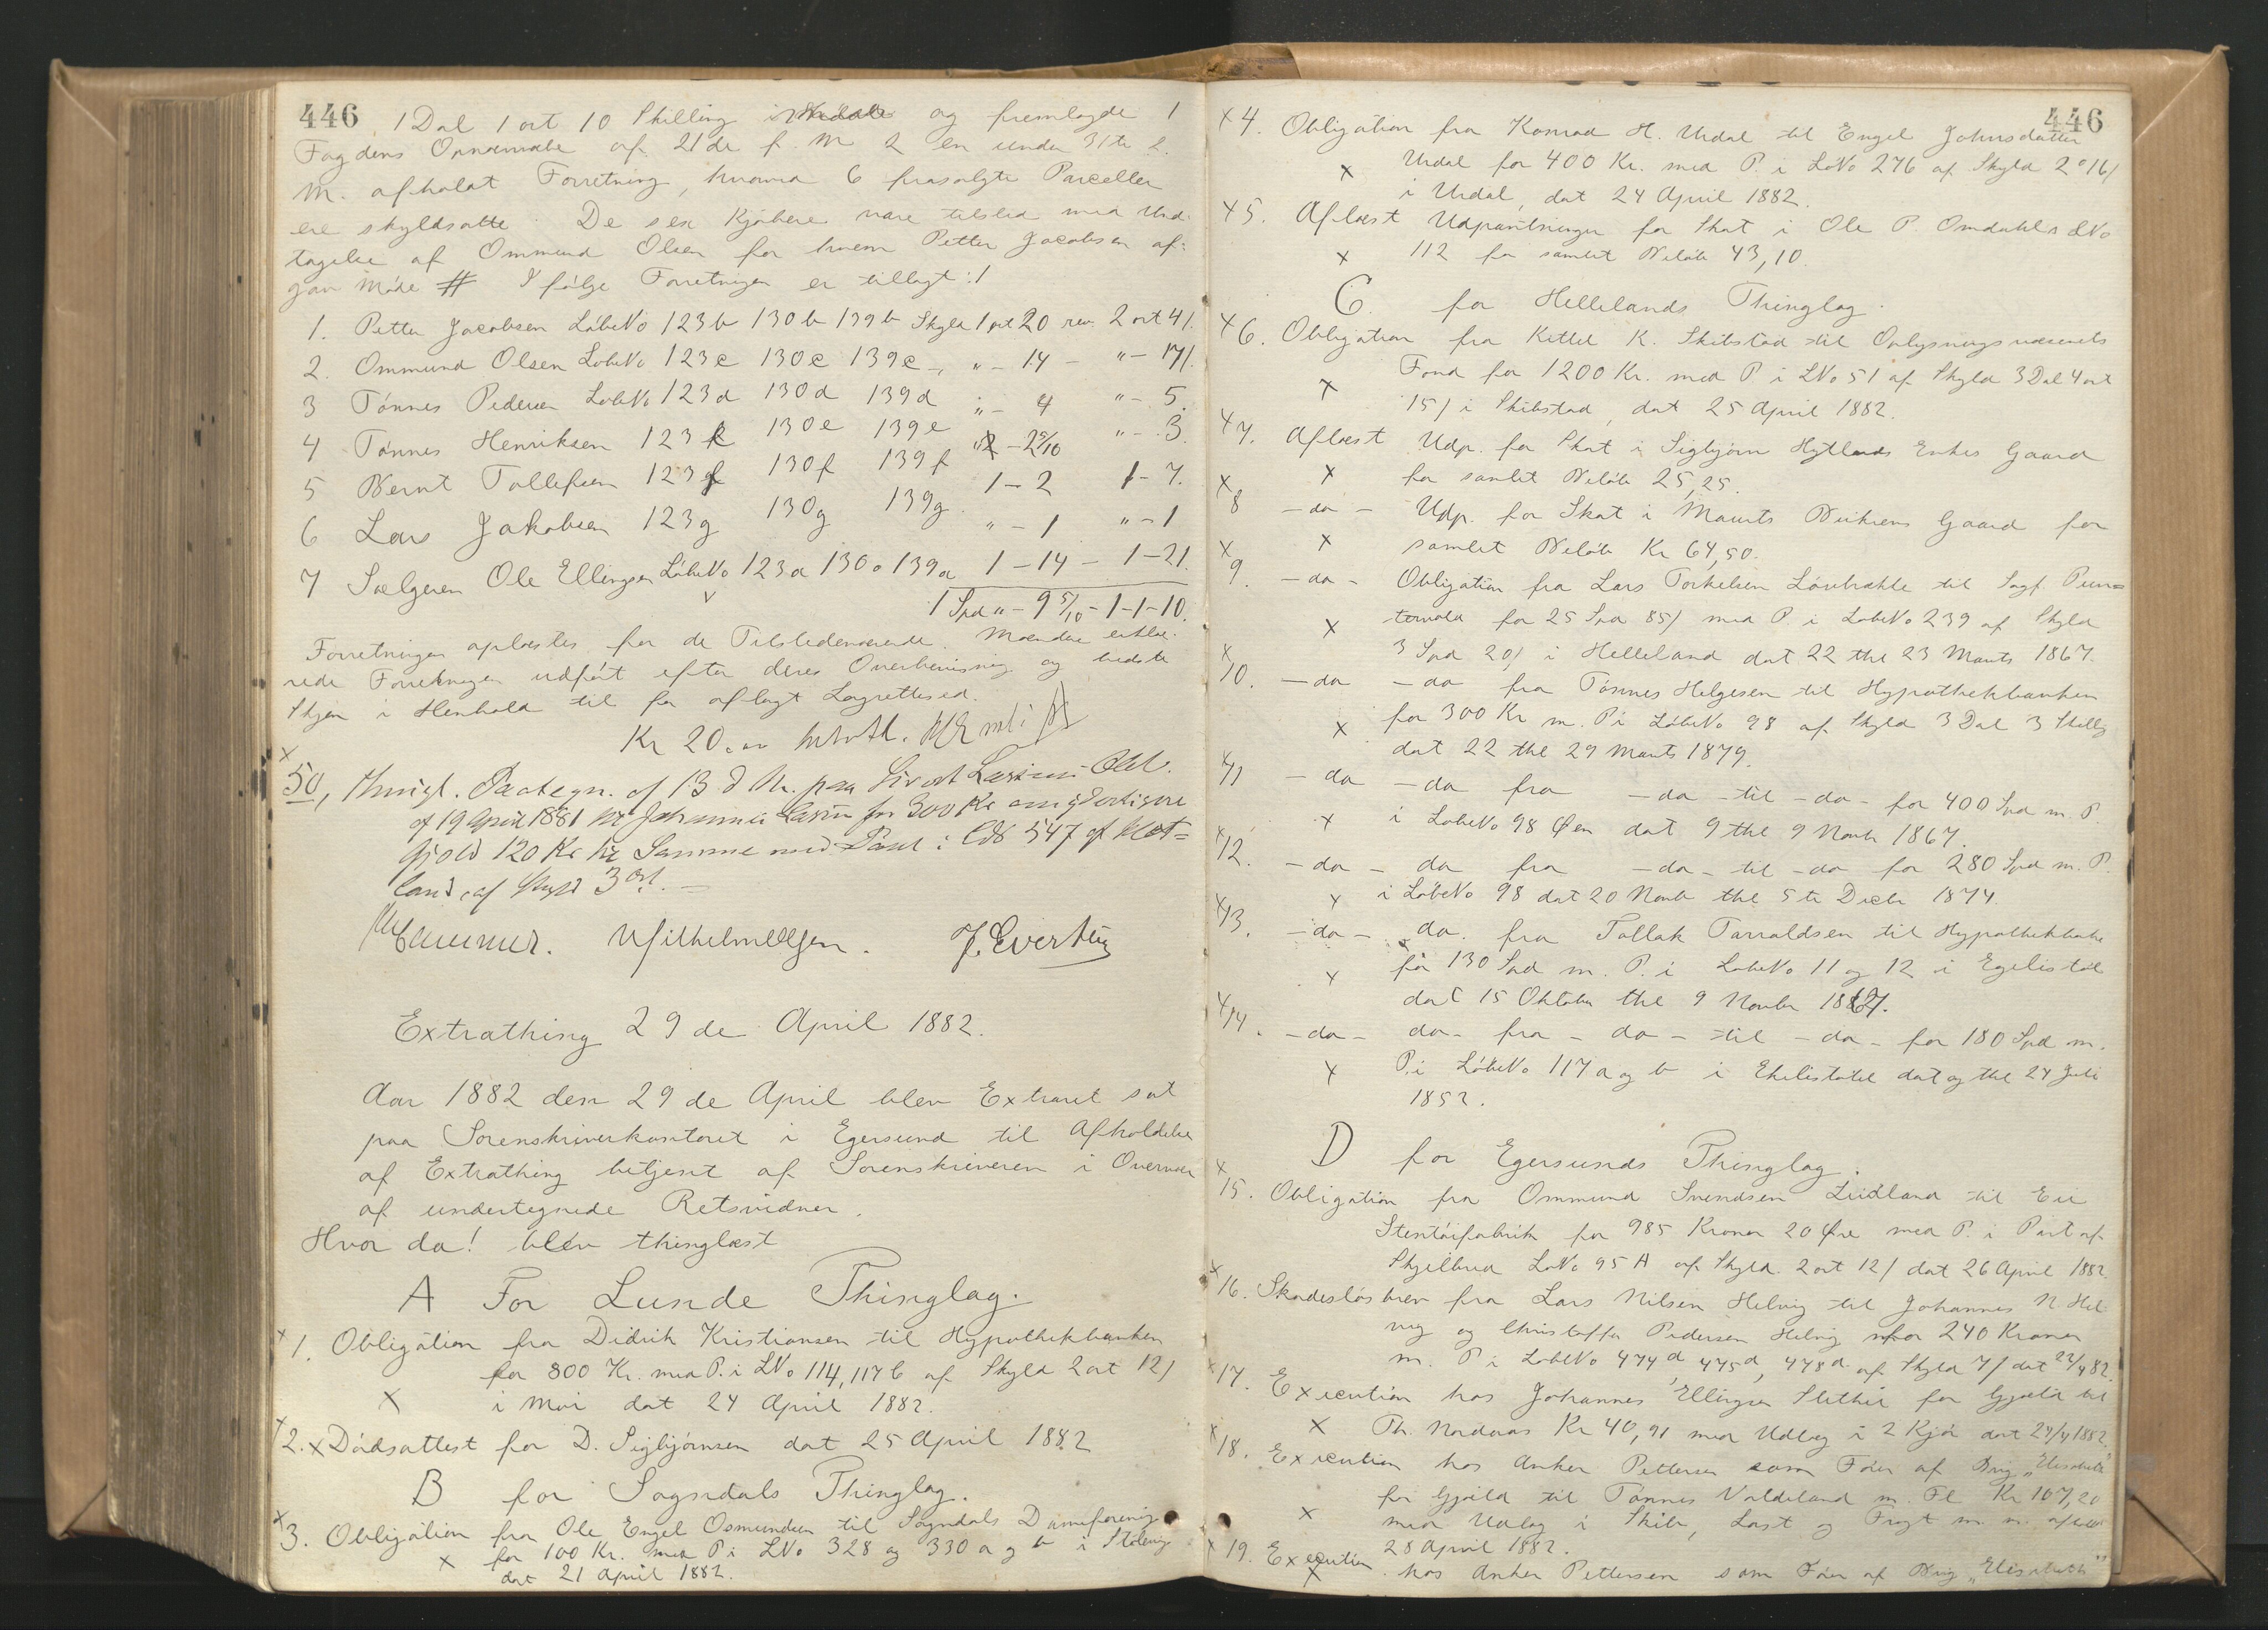 446 1 Dal 1 ort 10 Skilling i og fremlagde 1
Fogdens Opnævnelse af 21de f. M 2 en under 31te f.
M. afholdt Forretning, hvorved 6 frasolgte Parceller
ere skyldsatte. De sex Kjøbere vare tilsted med Und-
tagelse af Ommund Olsen for hvem Petter Jacobsen af-
gav Møde # I følge Forretningen er tillagt:/
1. Petter Jacobsen LøbeNo 123b 130b 139b Skyld 1 ort 20 rev. 2 ort 4/.
2. Ommund Olsen LøbeNo 123c 130c 139c -, " - 14 - " - 17/.
3 Tønnes Pedersen LøbeNo 123d 130d 139d " - 4 " - 5.
4 Tønnes Henriksen 123e 130e 139e " - 2 5/10 " - 3.
5 Bernt Tollefsen 123f 130f 139f 1 - 2 1 - 7.
6 Lars Jakobsen 123g 130g 139g. " - 1 " - 1
7 Sælgeren Ole Ellingsen LøbeNo 123a 130a 139a 1 - 14 - 1 - 21.
1 Spd " - 9 5/10 - 1 - 1 - 10.
Forretningen oplæstes for de Tilstedeværende. Mændene erklæ-
rede Forretningen udført efter deres Overbevisning og bedste
Skjøn i Henhold til før aflagt Lagrettesed.
Kr 20.
50, thingl. Paategn. af 13 d M. paa Obl.
af 19 April 1881 til Johannes for 300 Kr
gjeld 120 Kr til Samme med Pant i LNo 547 af
land, af Skyld 3 ort. -
Vilhelm Olsen. J. Evertsen
Extrathing 29de April 1882.
Aar 1882 den 29de April blev Extraret sat
paa Sorenskriverkontoret i Egersund til Afholdelse
af Extrathing betjent af Sorenskriveren i Overvær
af undertegnede Retsvidner.
Hvor da! blev thinglæst
A For Lunde Thinglag.
x 1. Obligation fra Didrik Kristiansen til Hypothekbanken
for 800 Kr. med P. i LNo 114, 117b af Skyld 2 ort 12/
x i Moi dat 24 April 1882.
x 2. x Dødsattest for D. Sigbjørnsen dat 25 April 1882
B for Sogndals Thinglag.
x 3. Obligation fra Ole Engel Osmundsen til Sogndals
x for 100 Kr. med P i LNo 328 og 330 a og b i
dat 21 April 1882.
446
x 4. Obligation fra Konrad H. Urdal til Engel Johnsdatter
x Urdal for 400 Kr. med P. i LøNo 276 af Skyld 2 ° 16/
i Urdal, dat 24 April 1882.
x 5. Aflæst Udpantninger for Skat i Ole P. Omdahls LNo
x 112 for samlet Beløb 43,10.
C. for Hellelands Thinglag.
x 6. Obligation fra Kittel K. Skibstad til Oplysningsvæsenets
x Fond for 1200 Kr. med P i LNo 51 af Skyld 3 Dal 4 ort
15/ i Skibstad, dat 25 April 1882.
x 7. Aflæst Udp. for Skat i Sigbjørn Hytlands Enkes Gaard
x for samlet Beløb 25,25.
x 8 - do - Udp. for Skat i Maurits Gaard for
x samlet Beløb Kr 64,50.
x 9. - do - Obligation fra Lars Torkelsen Løvbrække til Sogf.
x for 25 Spd 85/ med P. i LøbeNo 239 af Skyld
3 Spd 20/ i Helleland dat 22 thl 23 Marts 1867.
x 10. - do - do fra Tønnes Helgesen til Hypothekbanken
x for 300 Kr m. P i LøbeNo 98 af Skyld 3 Dal 3 Skillg
dat 22 thl 29 Marts 1879.
x 11 - do - do fra - do - til - do - for 400 Spd m. P.
x i LøbeNo 98 dat 9 thl 9 Novb 1867.
x 12. - do - do fra - do - til - do for 280 Spd m. P.
x i LøbeNo 98 dat 20 Novb thl 5te Decb 1874.
x 13. - do - do. fra Tollak Tarraldsen til Hypothekbanken
x for 130 Spd m. P. i LøbeNo 11 og 12 i
dat 15 Oktober thl 9 Novbr 1867.
x 14. - do - do - fra - do - til - do - for 180 Spd m.
x P. i LøbeNo 117 a og b i dat og thl 24 Juli
1852.
D for Egersunds Thinglag.
x 15. Obligation fra Ommund Svendsen Leidland til Eie
Stentøifabrik for 985 Kroner 20 Øre med P. i Part af
Skjelbred LøNo 95 A af Skyld. 2 ort 12/ dat 26 April 1882
x 16. Skadesløsbrev fra Lars Nilsen Helvig til Johannes N Hel-
vig og Christoffer Pedersen Helvig for 240 Kroner
m. P i LøbeNo 474d, 475d, 478d af Skyld 7/ dat 22/4 82.
x 17. Execution hos Johannes Ellingsen for Gjæld til
x Th. Nordaas Kr 40,91 med Udlæg i 2 Kjør dat 24/4 1882.
x 18. Execution hos Anker Pettersen som Fører af Brig "Elisabeth"
for Gjæld til Tønnes m. Fl. Kr 107,20
x med Udlæg i Skib, Last og Fragt m. m.
28 April 1882.
x 19. Execution hos Anker Pettersen som Fører af Brig "Elisabeth"
x